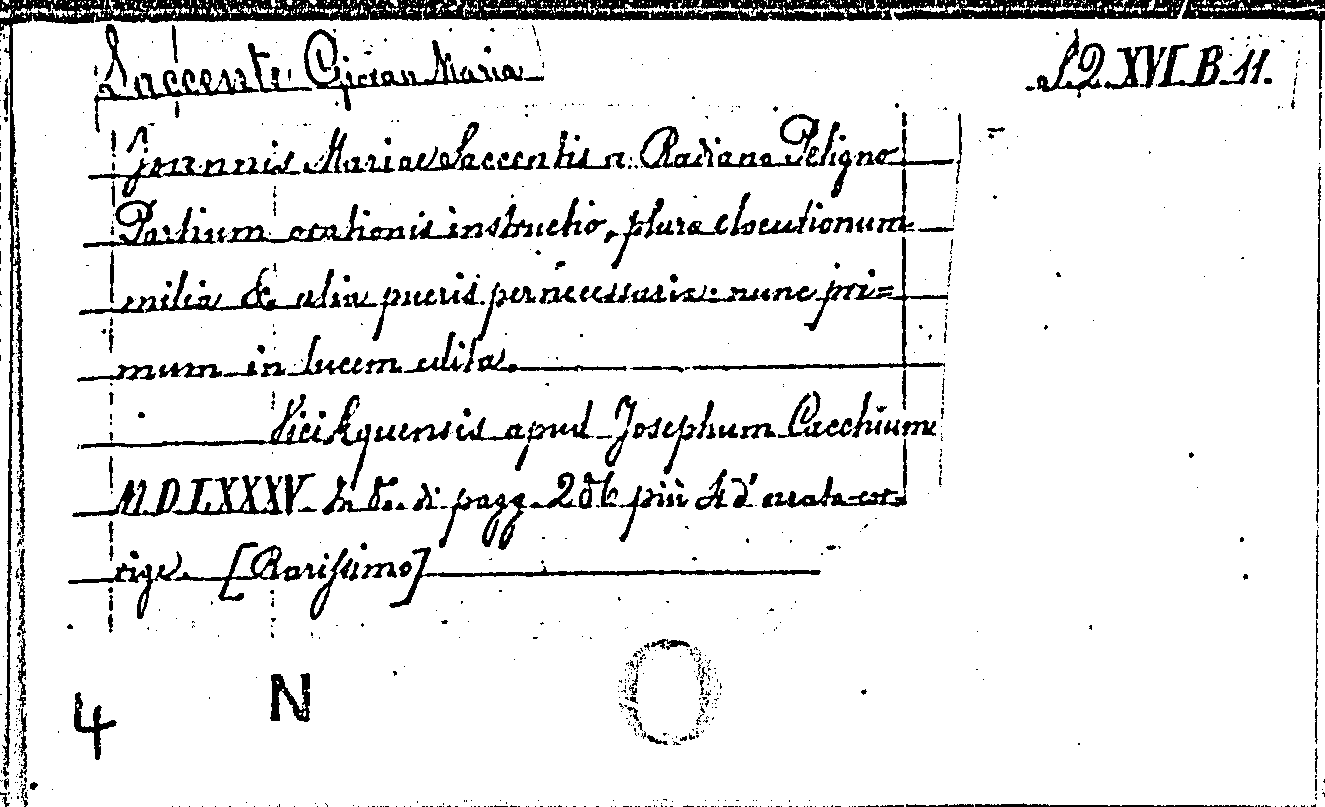 Saccente Giovan Maria
S.Q. XVI. B 11.
Joannis Mariae Saccentis a Radiano Peligno
Partium orationis instructio, plura elocutionum
milia & alia pueris pernecessaria: nunc pri=
mum in lucem edita.
apud Josephum Cacchium
MDLXXXV. In 8.º di pagg. più d'errata-cor-
rige. [Rarissimo]
4 N